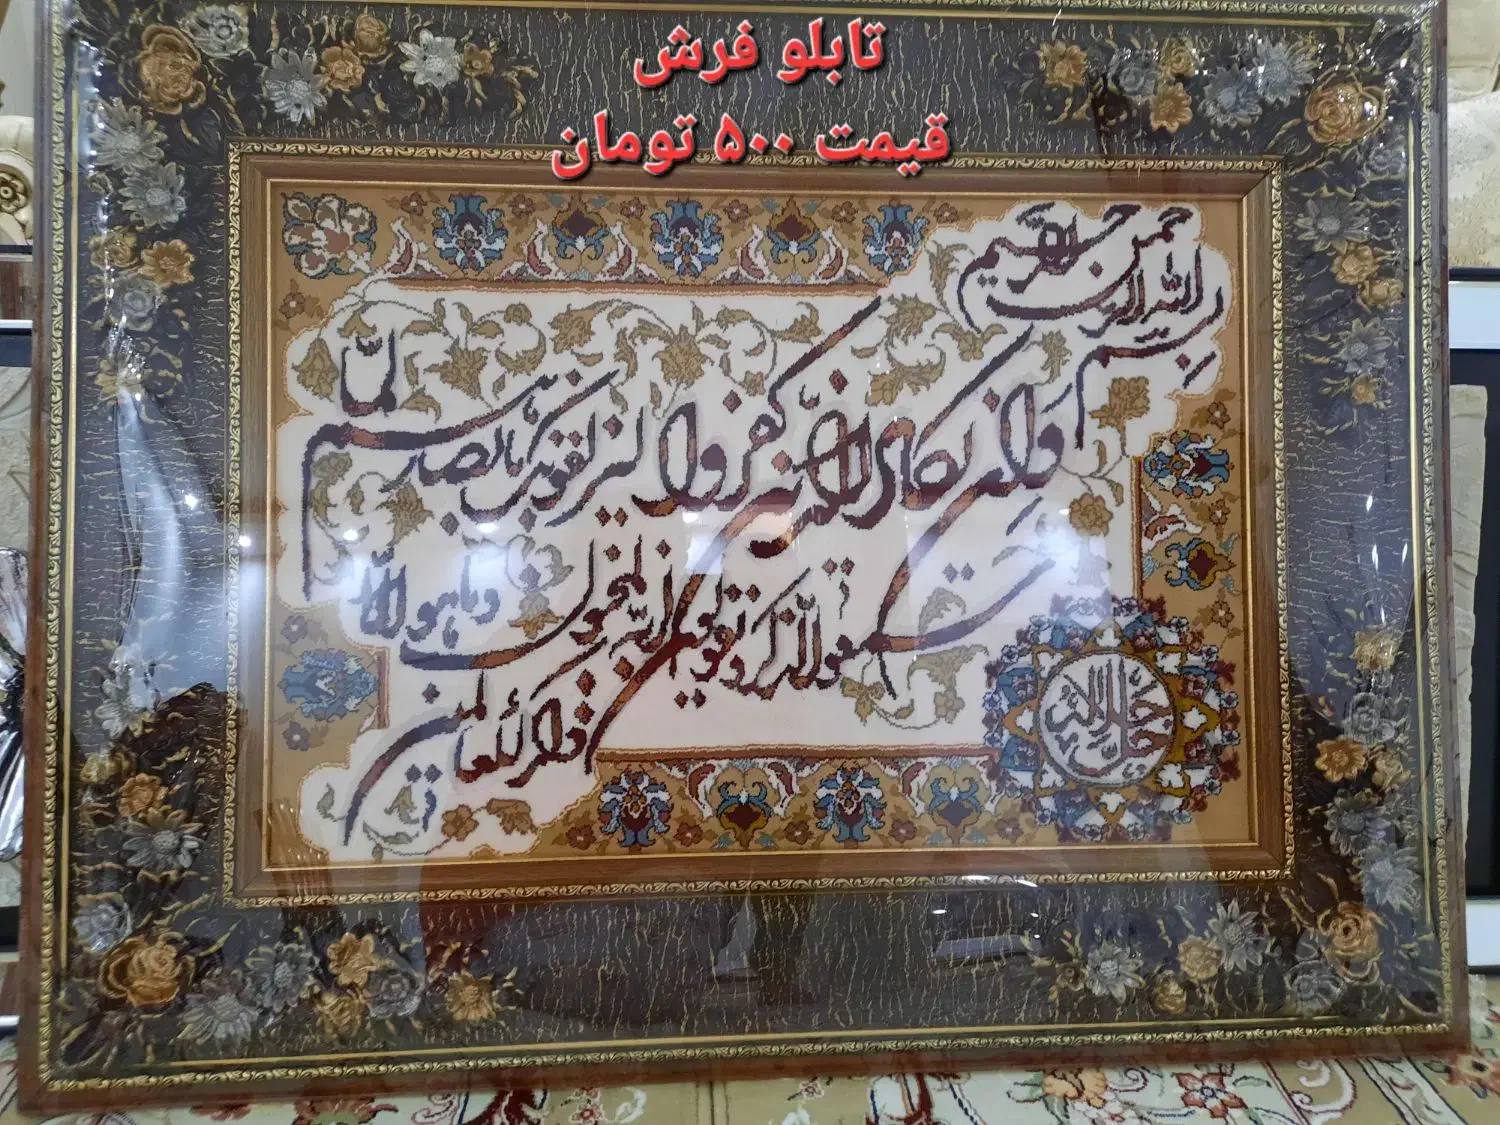 تابلو فرش
قیمت ۵۰۰ تومان
بسم الله الرحمن الرحیم
وان یکاد الذین کفروا لیزلقونک بابصارهم لما
سمعوا الذکر و یقولون انه لمجنون وما هو الا
ذکر للعالمین